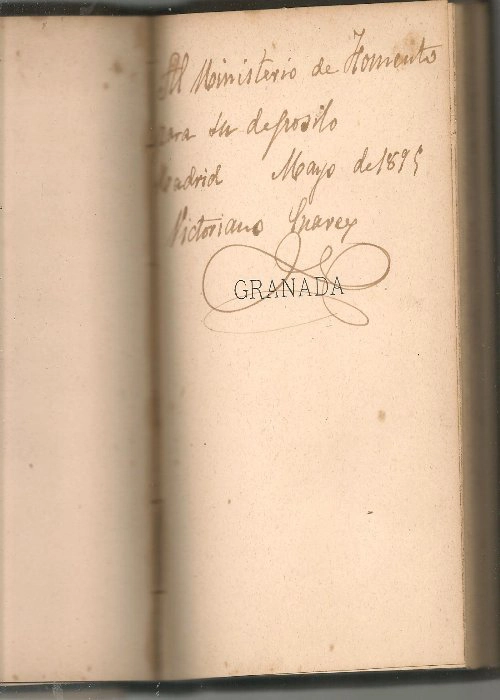 Al Ministerio de Fomento
para su deposito
Madrid Mayo de 1895
Victoriano
GRANADA